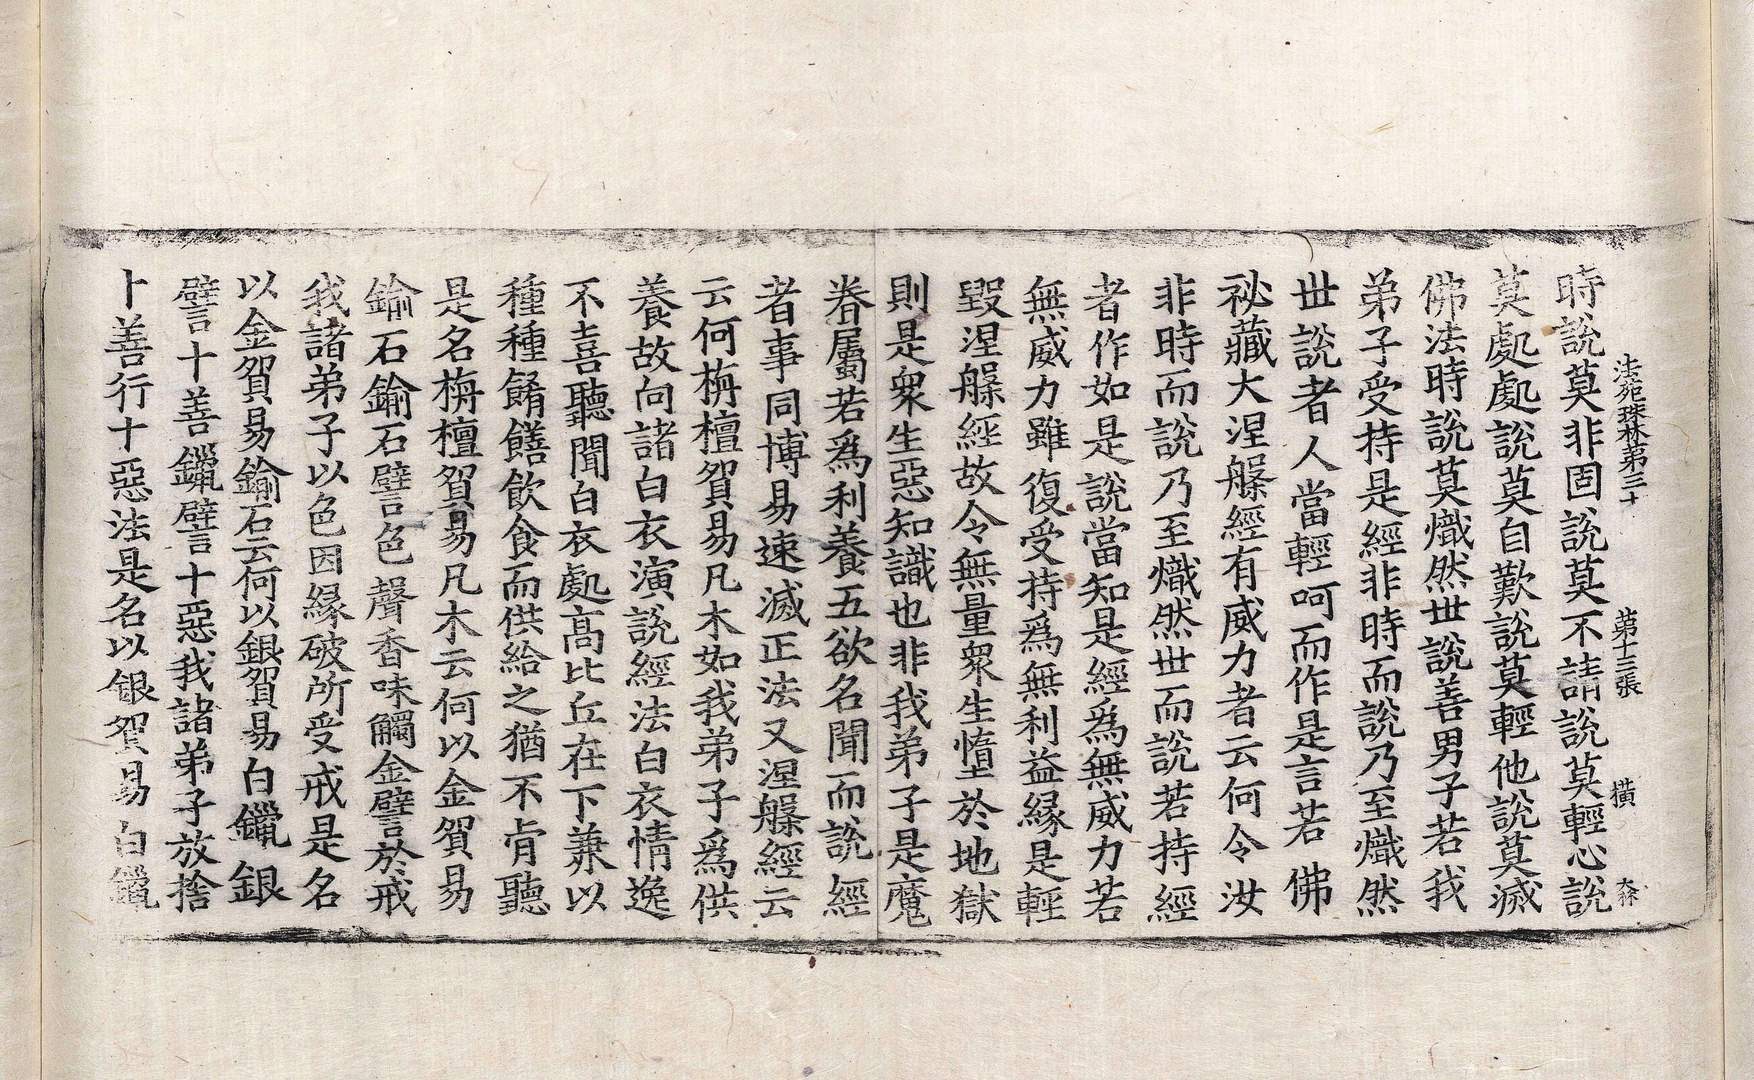 法苑珠林第三十　第十三張　橫　大林
時說莫非固說莫不請說莫輕心說
莫處處說莫自歎說莫輕他說莫滅
佛法時說莫熾然世說善男子若我
弟子受持是經非時而說乃至熾然
世說者人當輕呵而作是言若佛
祕藏大涅槃經有威力者云何令汝
非時而說乃至熾然世而說若持經
者作如是說當知是經為無威力若
無威力雖復受持為無利益緣是輕
毀涅槃經故令無量眾生墮於地獄
則是眾生惡知識也非我弟子是魔
眷屬若為利養五欲名聞而說經
者事同博易速滅正法又涅槃經云
云何栴檀貿易凡木如我弟子為供
養故向諸白衣演說經法白衣情逸
不喜聽聞白衣處高比丘在下兼以
種種餚饍飲食而供給之猶不肯聽
是名栴檀貿易凡木云何以金貿易
鍮石鍮石譬色聲香味觸金譬於戒
我諸弟子以色因緣破所受戒是名
以金貿易鍮石云何以銀貿易白鑞銀
譬十善鑞譬十惡我諸弟子放捨
十善行十惡法是名以銀貿易白鑞